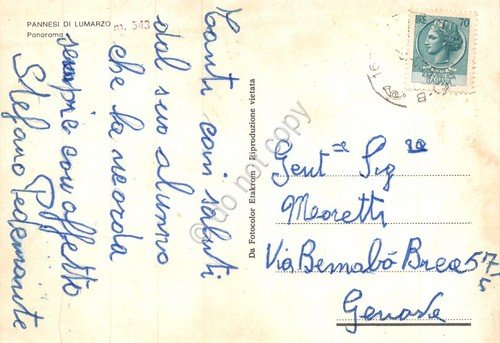 PANNESI DI LUMARZO m. 543
Panorama
Tanti cari saluti
dal suo alunno
che la ricorda
sempre con affetto
Stefano Pedemonte
Da Fotocolor Etakrom - Riproduzione vietata
LIRE 70
ITALIANA
Gent.le Sig.ra
Moretti
Via Bernabò Brea 57/5
Genova
do not copy